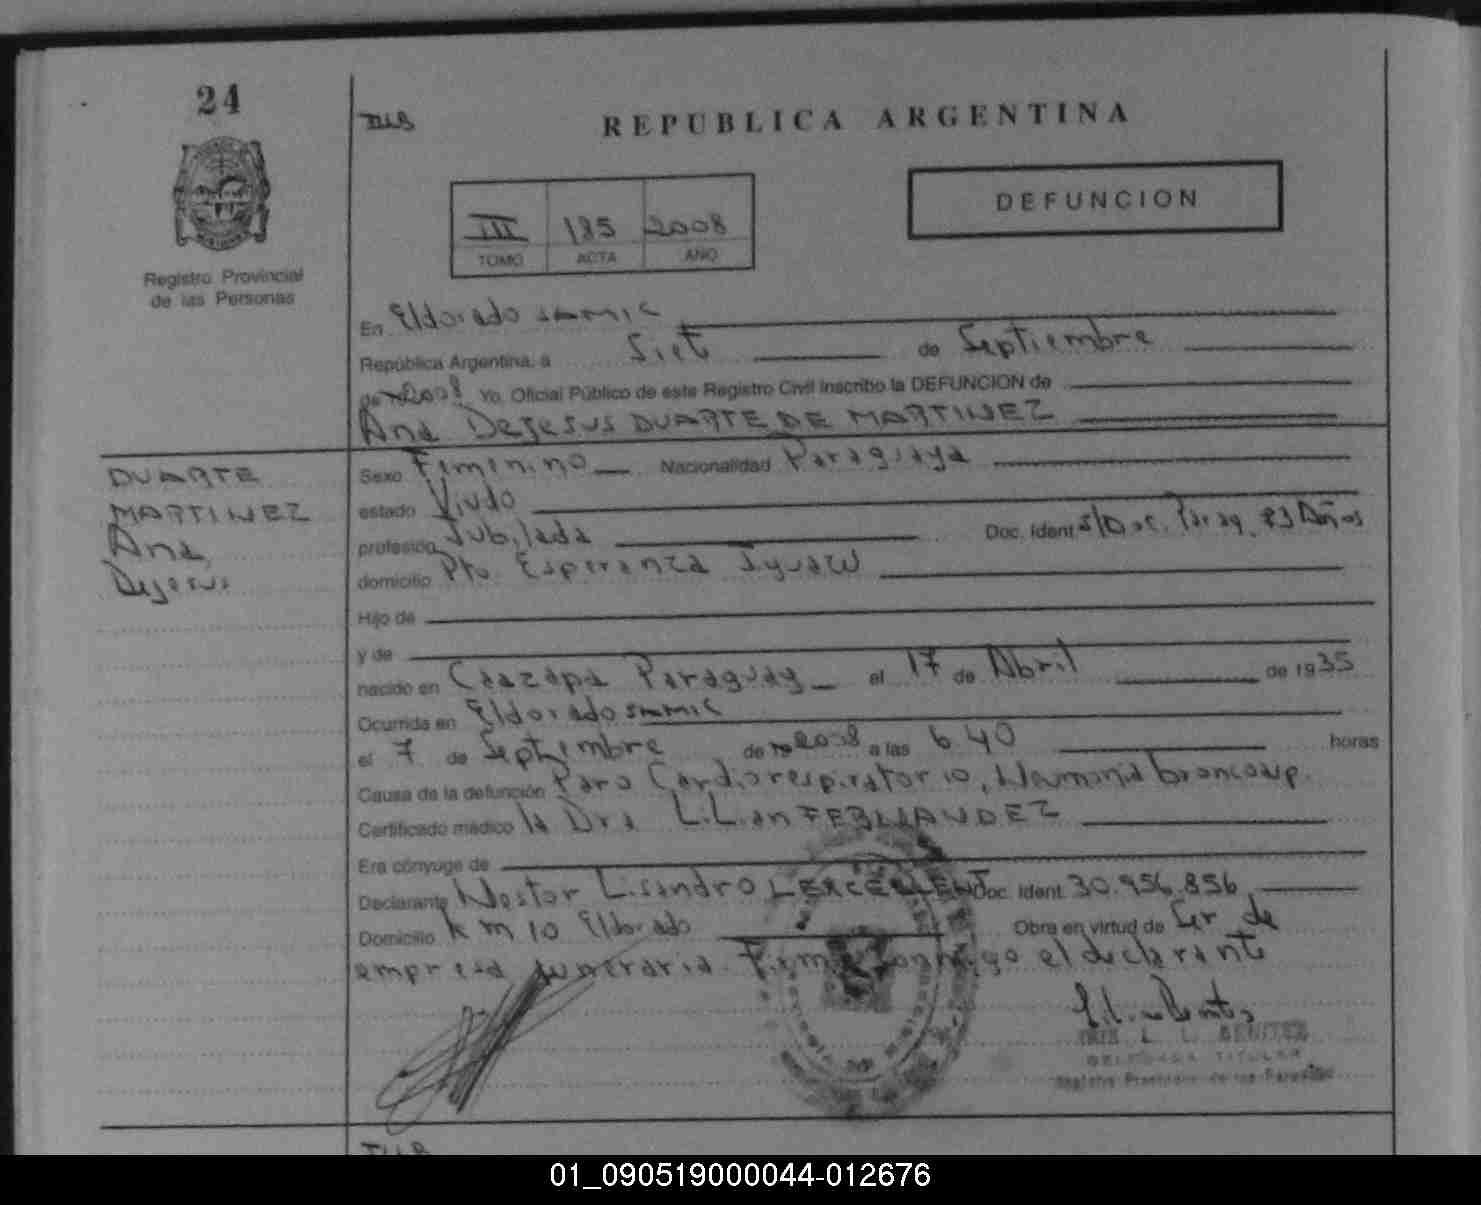 24
REPUBLICA ARGENTINA
DEFUNCION
III 185 2008
TOMO ACTA AÑO
Registro Provincial
de las Personas
En Eldorado SAMIC
República Argentina, a Siete de Septiembre
de 2008 Yo. Oficial Público de este Registro Civil Inscribo la DEFUNCION de
Ana Dejesus DUARTE DE MARTINEZ
DUARTE
MARTINEZ
Ana
Dejesus
Sexo Femenino Nacionalidad Paraguaya
estado Viuda
profesión Jubilada Doc. Ident S/Doc. Parag. 73 Años
domicilio Pto. Esperanza Iguazú
Hijo de
y de
nacido en Caazapa Paraguay el 17 de Abril de 1935
Ocurrida en Eldorado SAMIC
el 7 de Septiembre de 2008 a las 6 40 horas
Causa de la defunción Paro Cardiorespiratorio, Neumonia broncoasp.
Certificado médico la Dra Lilian FERNANDEZ
Era cónyuge de
Declarante Nestor Lisandro Doc. Ident. 30.956.856
Domicilio Km 10 Eldorado Obra en virtud de Cer de
empresa funeraria. Firma conmigo el declarante
L. BENITEZ
DELEGADA TITULAR
Registro Provincial de las Personas
01_090519000044-012676